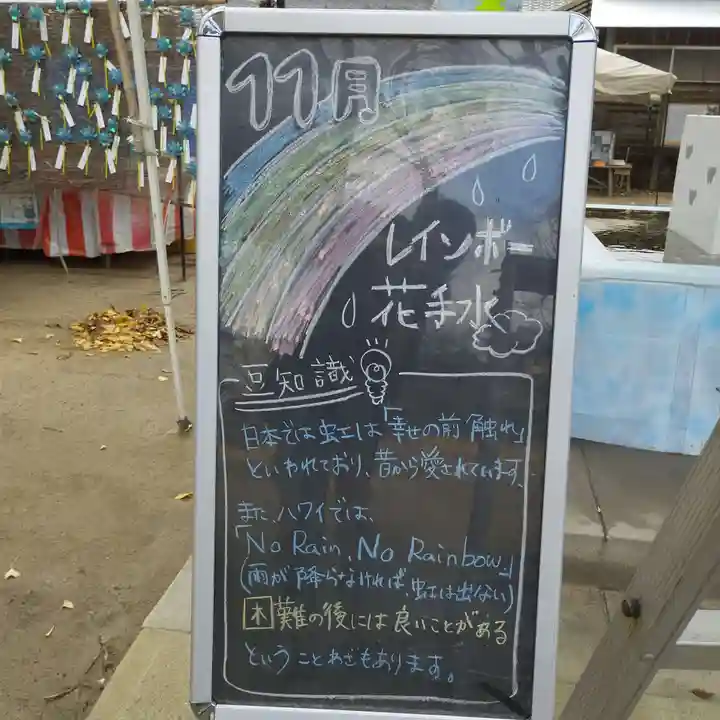 11月
レインボー
花手水
豆知識
日本では虹は「幸せの前触れ」
といわれており、昔から愛されています。
また、ハワイでは、
「No Rain, No Rainbow」
(雨が降らなければ、虹は出ない)
困難の後には良いことがある
ということわざもあります。